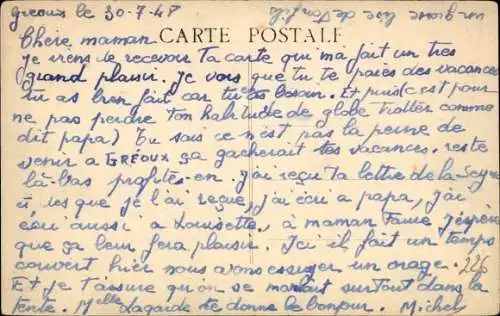 Greoux le 30-7-48
un grosse bise de
CARTE POSTALE
Chère maman
je viens de recevoir ta carte qui m'a fait un très
grand plaisir. je vois que tu te paies des vacances
tu as bien fait car tu as besoin. Et puis (c'est pour
ne pas perdre ton habitude de globe trotter comme
dit papa) Tu sais ce n'est pas la peine de
venir a GRÉOUX ça gacherait tes vacances. reste
là-bas profites-en. j'ai reçu ta lettre de la Seyne
que je l'ai reçue, j'ai écri a papa, j'ai
écri aussi a Louisette, à maman j'espère
que ça leur fera plaisir. Ici il fait un temps
couvert hier nous avons essuyer un orage. 226
Et je t'assure qu'on se marrait surtout dans la
tente. Melle Lagarde te donne le bonjour. Michel